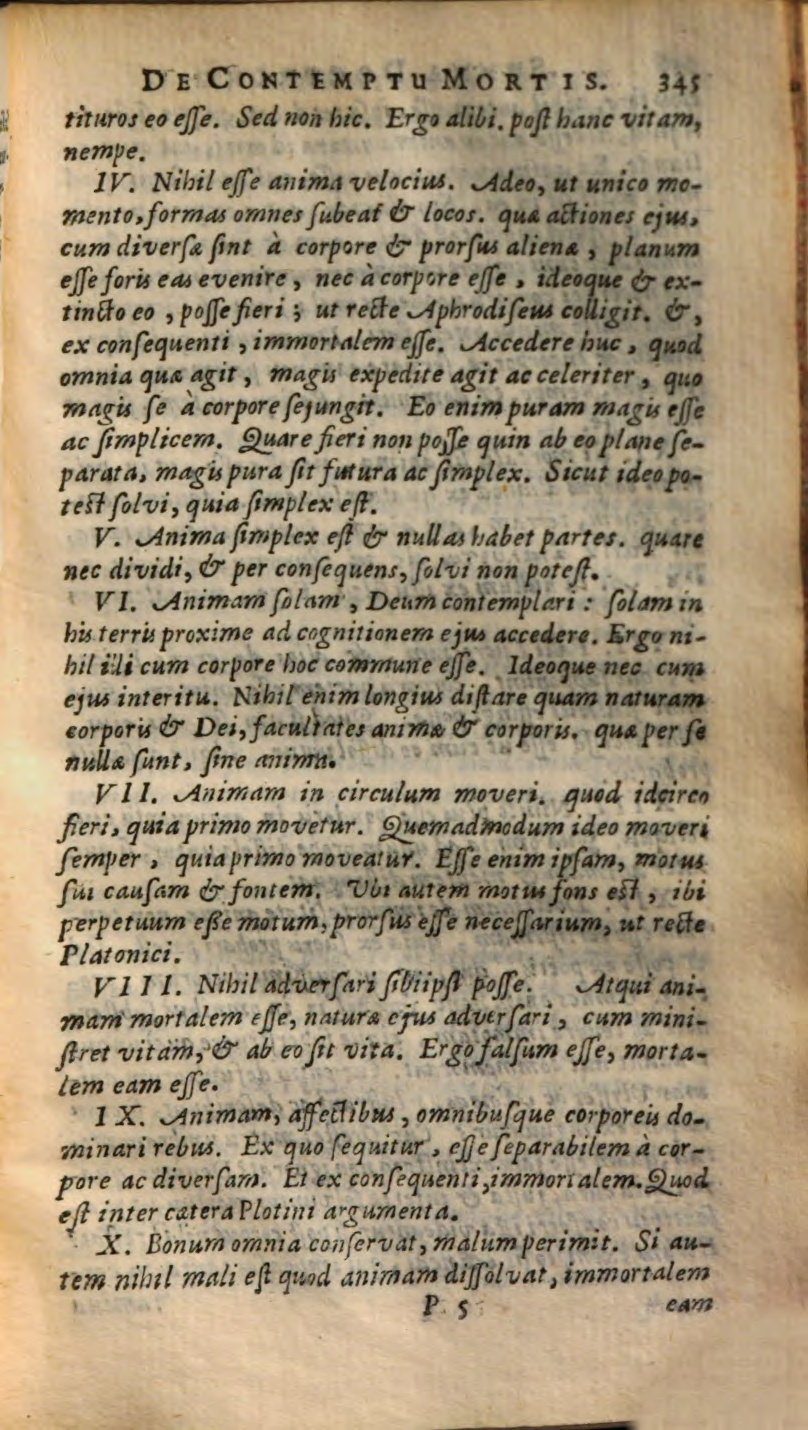 DE CONTEMPTU MORTIS. 345
tituros eo esse. Sed non hic. Ergo alibi. post hanc vitam,
nempe.
IV. Nihil esse anima velocius. Adeo, ut unico mo-
mento, formas omnes subeat & locos. quæ actiones ejus,
cum diversæ sint à corpore & prorsus alienæ, planum
esse foris eas evenire, nec à corpore esse, ideoque & ex-
tincto eo, posse fieri; ut recte Aphrodiseus colligit. &,
ex consequenti, immortalem esse. Accedere huc, quod
omnia quæ agit, magis expedite agit ac celeriter, quo
magis se à corpore sejungit. Eo enim puram magis esse
ac simplicem. Quare fieri non posse quin ab eo plane se-
parata, magis pura sit futura ac simplex. Sicut ideo po-
test solvi, quia simplex est.
V. Anima simplex est & nullas habet partes. quare
nec dividi, & per consequens, solvi non potest.
VI. Animam solam, Deum contemplari: solam in
his terris proxime ad cognitionem ejus accedere. Ergo ni-
hil illi cum corpore hoc commune esse. Ideoque nec cum
ejus interitu. Nihil enim longius distare quam naturam
corporis & Dei, facultates animæ & corporis. quæ per se
nullæ sunt, sine anima.
VII. Animam in circulum moveri. quod idcirco
fieri, quia primo movetur. Quemadmodum ideo moveri
semper, quia primo moveatur. Esse enim ipsam, motus
sui causam & fontem. Ubi autem motus fons est, ibi
perpetuum esse motum, prorsus esse necessarium, ut recte
Platonici.
VIII. Nihil adversari sibiipsi posse. Atqui ani-
mam mortalem esse, naturæ ejus adversari, cum mini-
stret vitam, & ab eo sit vita. Ergo falsum esse, morta-
lem eam esse.
IX. Animam, affectibus, omnibusque corporeis do-
minari rebus. Ex quo sequitur, esse separabilem à cor-
pore ac diversam. Et ex consequenti, immortalem. Quod
est inter cætera Plotini argumenta.
X. Bonum omnia conservat, malum perimit. Si au-
tem nihil mali est quod animam dissolvat, immortalem
P 5 eam